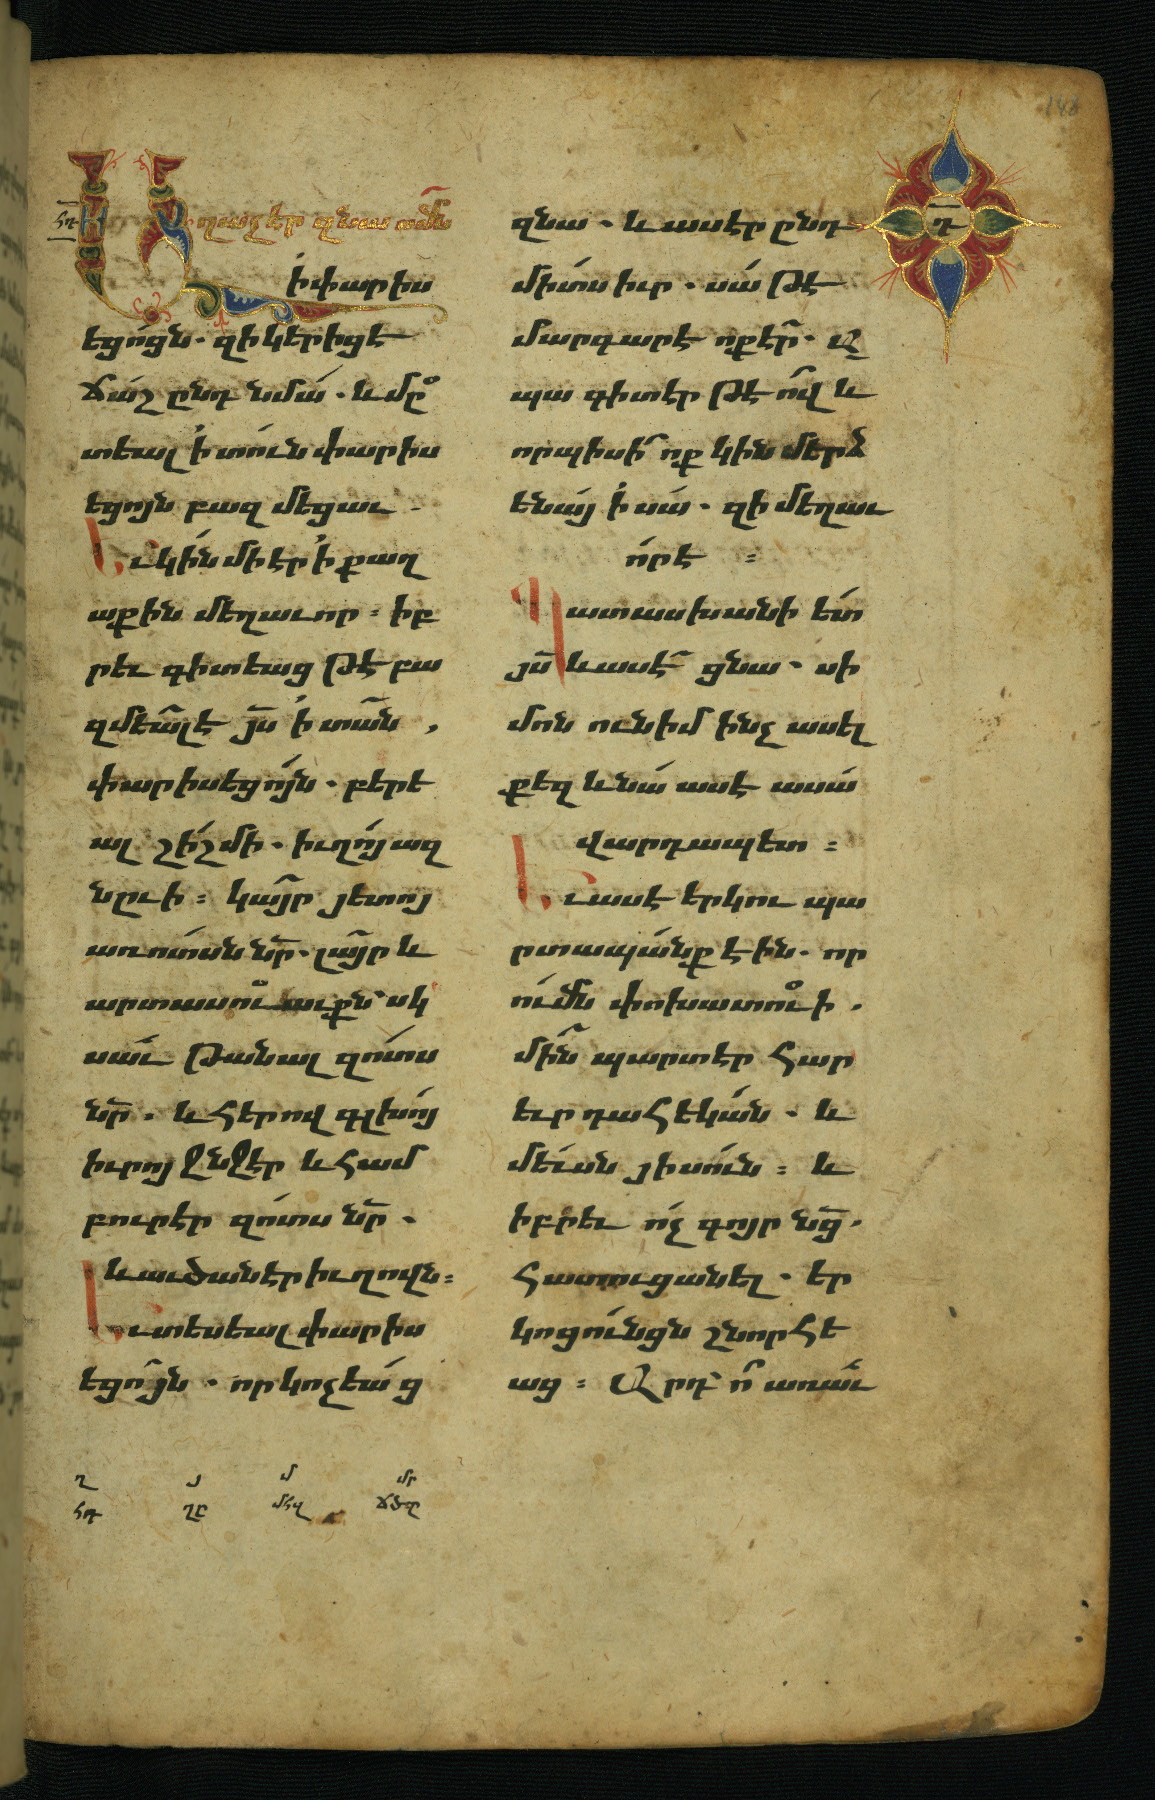 Աղաչէր զնա ոմն
ի փարիս
եցոցն. զի կերիցէ
ճաշ ընդ նմա. և մը
տեալ ի տուն փարիս
եցոյն բազմեցաւ.
Եւ կին մի էր ի քաղ
աքին մեղաւոր: իբ
րեւ գիտեաց թէ բա
զմեալ է յս ի տան,
փարիսեցոյն. բերե
ալ շիշ մի. իւղոյ ազ
նըւի: կայր յետոյ
առ ոտսն նր. լայր և
արտասուաւքն սկ
սաւ թանալ զոտս
նր. և հերով գլխոյ
իւրոյ ջնջէր և համ
բուրէր զոտս նր.
և աւծանէր իւղովն:
Եւ տեսեալ փարիս
եցոյն. որ կոչեաց
զնա. և ասէր ընդ
միտս իւր. սա թէ
մարգարէ ոք էր. Ա
պա գիտէր թէ ով և
որպիսի ոք կին մերձ
ենայ ի սա. զի մեղաւ
որ է:
Պատասխանի ետ
յս և ասէ ցնա. սի
մոն ունիմ ինչ ասել
քեզ և նա ասէ ասա
վարդապետ:
Եւ ասէ երկու պա
րտապանք էին. որ
ումն փոխատուի.
մին պարտէր հար
եւր դահեկան. և
մեւսն յիսուն: և
իբրեւ ոչ գոյր նց.
հատուցանել. եր
կոցունցն շնորհե
աց: Արդ ո առաւ